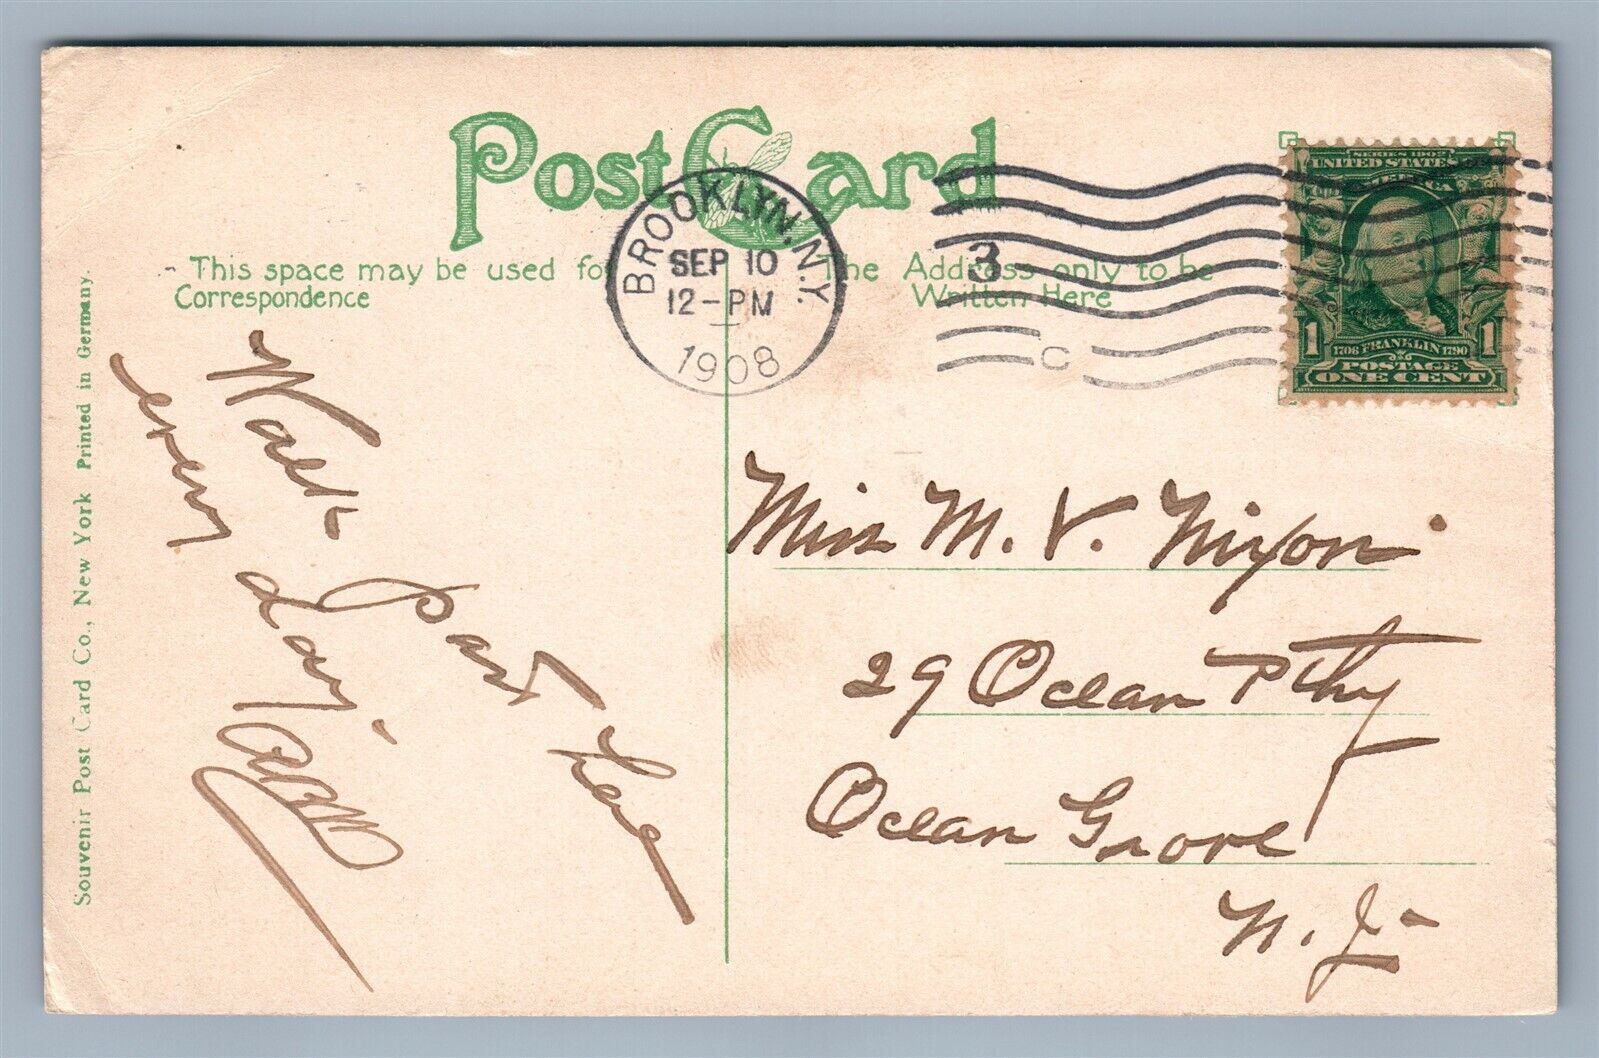 Post Card
This space may be used for
Correspondence
The Address only to be
Written Here
BROOKLYN, N.Y.
SEP 10
12-PM
1908
3
C
SERIES 1902
UNITED STATES OF AMERICA
1 1
1706 FRANKLIN 1790
POSTAGE
ONE CENT
Walk past here
every day.
Miss M. V. Nixon
29 Ocean Pthy
Ocean Grove
N. J-
Souvenir Post Card Co., New York Printed in Germany.